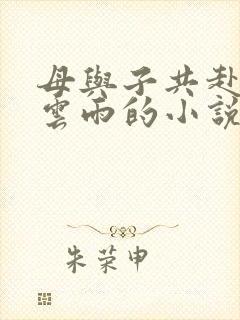 母與子共赴
雲雨的小說
朱荣申